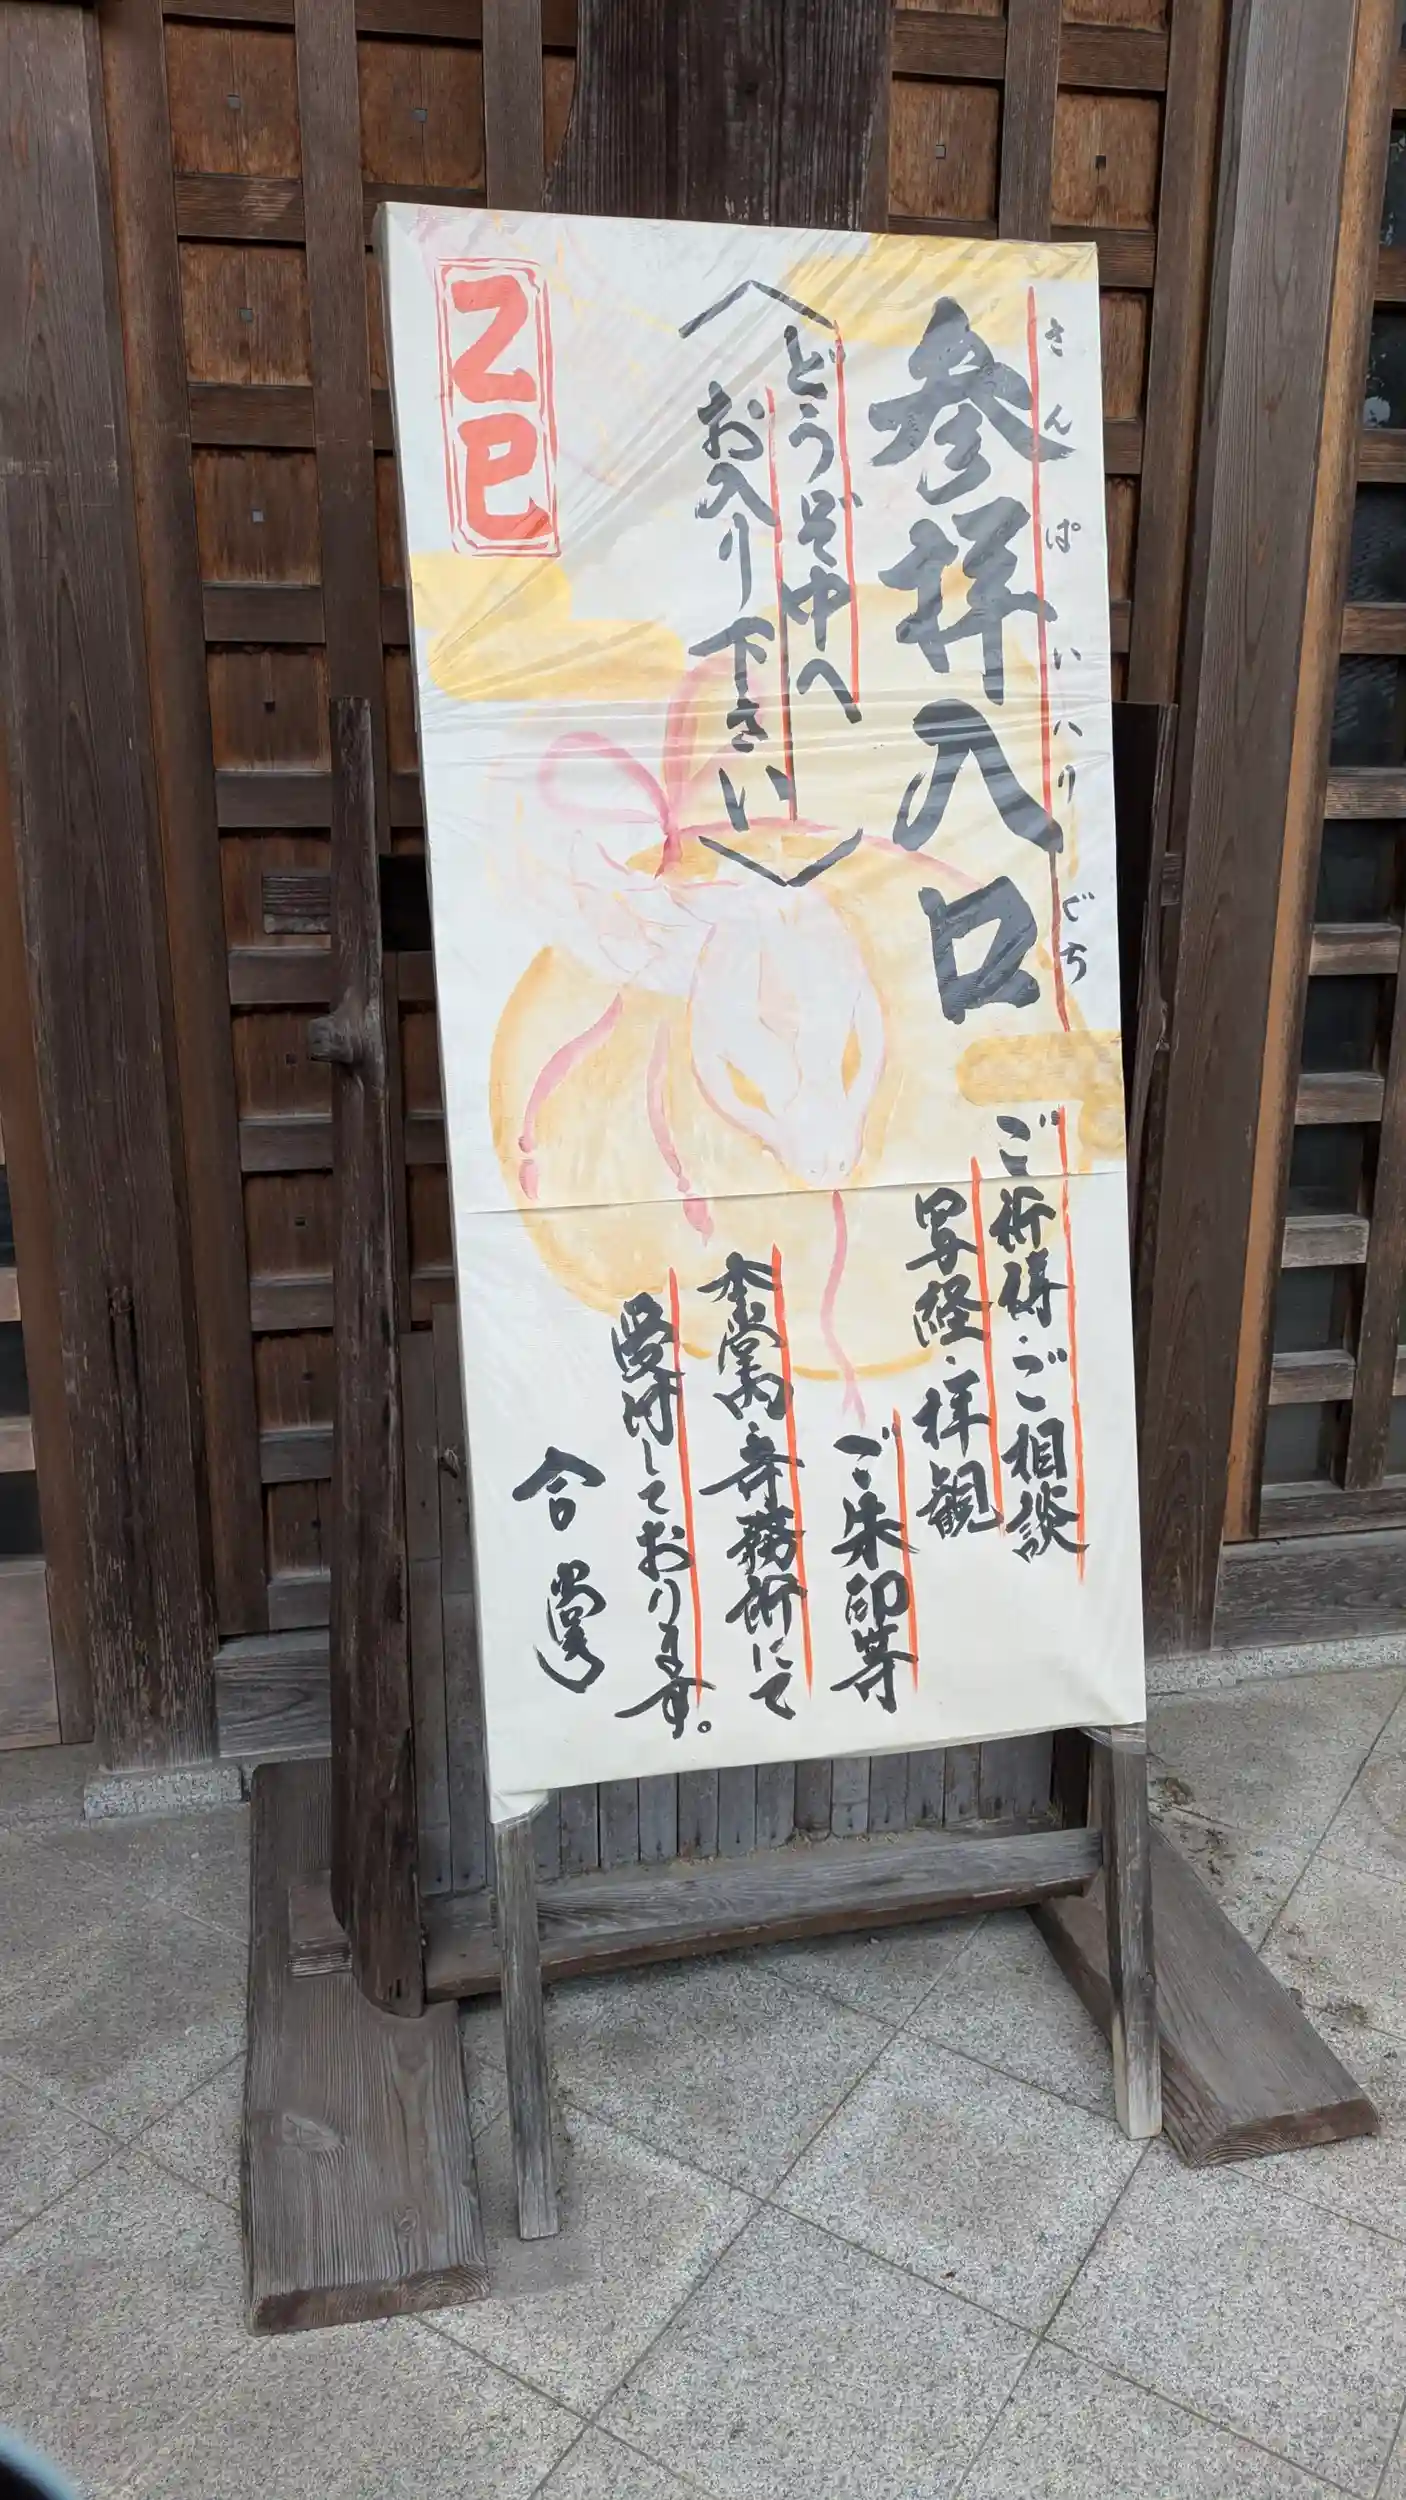 さんぱいいりぐち
参拝入口
〈どうぞ中へ
お入り下さい〉
ご祈祷・ご相談
写経・拝観
ご朱印等
本堂内・寺務所にて
受付しております。
合掌
乙巳